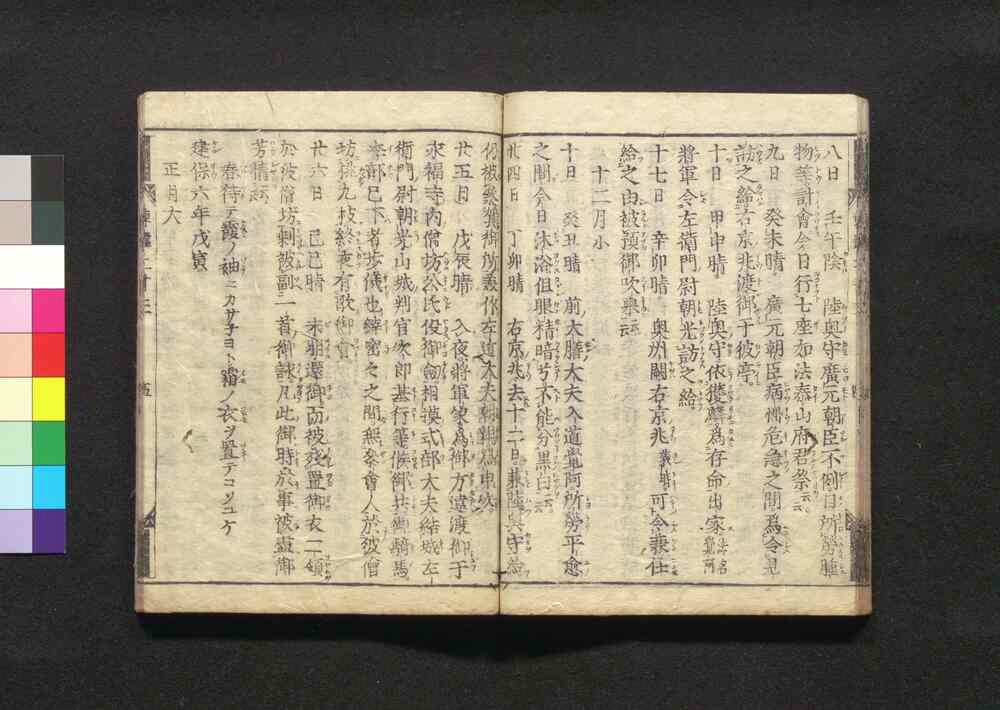 八日 壬午陰 陸奥守廣元朝臣不例目所勞腫
物等計會今日行七座如法泰山府君祭云云
九日 癸未晴 廣元朝臣病惱危急之間爲令見
訪之給右京兆渡御于彼亭
十日 甲申晴 陸奥守依獲麟爲存命出家法名覺阿
將軍令左衛門尉朝光訪之給
十七日 辛卯晴 奥州闕右京兆義時可令兼任
給之由被預御吹擧云云
十二月小
十日 癸丑晴 前大膳大夫入道覺阿所勞平愈
之間今日沐浴但眼精暗兮不能分黒白云云
廿四日 丁卯晴 右京兆去十二日兼陸奥守給
仍被
廿五日 戊辰晴 入夜將軍家爲御方違渡御于
永福寺内僧坊
衛門尉朝光山城判官次郎基行等候御共御騎馬
巳下者歩儀也縡密々之間無參會人於彼僧
坊終夜有歌御會
廿六日 己巳晴 未明還御而被殘置御衣二領
於彼僧坊剰被副一首御詠凡此御時於事被盡御
芳情云云
春待テ霞ノ袖ニカサ子ヨト霜ノ衣ヲ置テコソユケ
建保六年戊寅
正月大